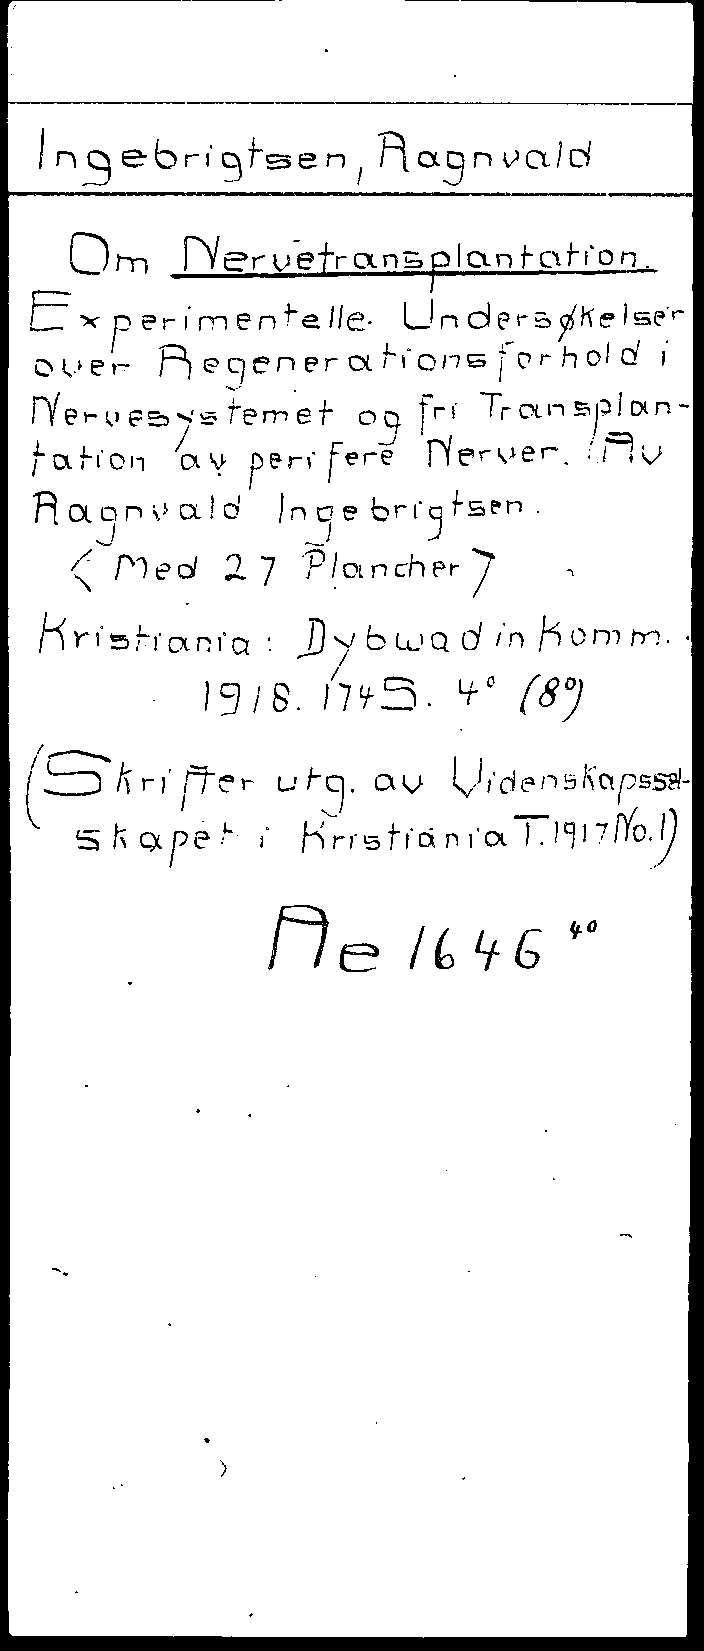 Ingebrigtsen, Ragnvald
Om Nervetransplantation.
Experimentelle Undersøkelser
over Regenerationsforhold i
Nervesystemet og fri Transplan-
tation av perifere Nerver. Av
Ragnvald Ingebrigtsen.
<Med 27 Plancher>
Kristiania: Dybwad in Komm.
1918. 174S. 4° (8°)
(Skrifter utg. av Videnskapssel-
skapet i Kristiania T.1917 No.1)
Ae 1646 4°